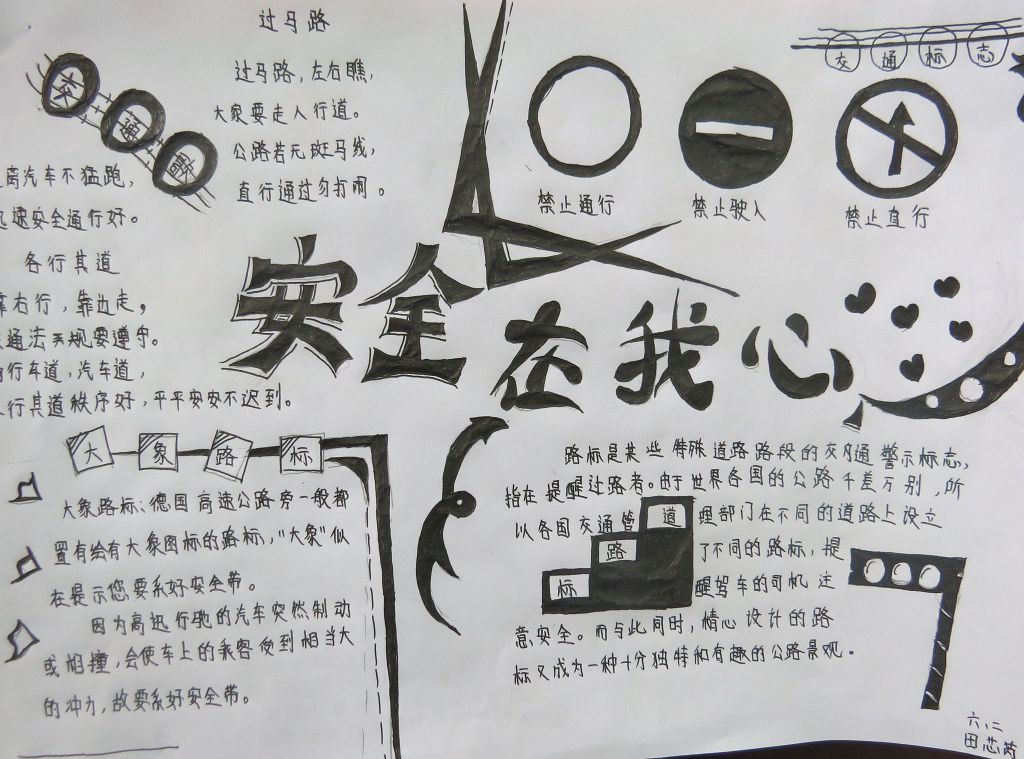 过马路
过马路，左右瞧，
大象要走人行道。
公路若无斑马线，
直行通过勿打闹。
交通
离汽车不猛跑，
速安全通行好。
各行其道
靠右行，靠边走。
通法规要遵守。
行车道，汽车道，
行其道秩序好，平平安安不迟到。
交通标志
禁止通行
禁止驶入
禁止直行
安全在我心
大象路标
大象路标：德国高速公路旁一般都
置有绘有大象图标的路标，“大象”似
在提示您要系好安全带。
因为高速行驶的汽车突然制动
或相撞，会使车上的乘客受到相当大
的冲力，故要系好安全带。
道路标
路标是某些特殊道路路段的交通警示标志，
指在提醒过路者。由于世界各国的公路千差万别，所
以各国交通管理部门在不同的道路上设立
了不同的路标，提
醒驾车的司机注
意安全。而与此同时，精心设计的路
标又成为一种十分独特和有趣的公路景观。
六、二
田芯芮